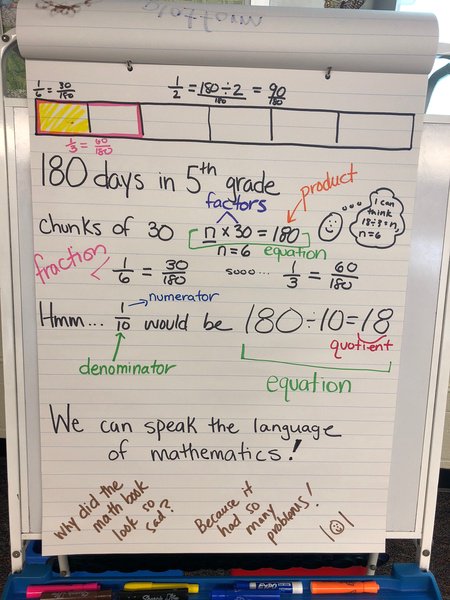 platform
1/6 = 30/180
1/2 = 180÷2/180 = 90/180
1/3 = 60/180
180 days in 5th grade
factors
product
Chunks of 30
n x 30 = 180
equation
n = 6
I can
think
18÷3=n,
n=6
fraction
1/6 = 30/180
sooo...
1/3 = 60/180
Hmm... 1/10 would be 180÷10=18
numerator
quotient
denominator
equation
We can speak the language
of mathematics!
Why did the
math book
look so
sad?
Because it
had so
many
problems!
EXPO